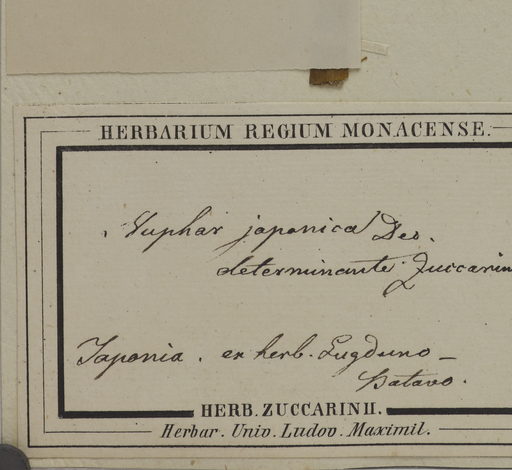 HERBARIUM REGIUM MONACENSE.
Nuphar japonica Dec.
determinante Zuccarin
Japonia. ex herb. Lugduno-
Batavo.
HERB. ZUCCARINII.
Herbar. Univ. Ludov. Maximil.